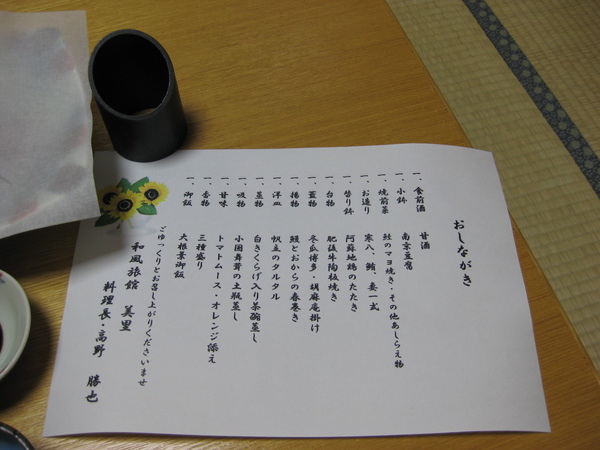 おしながき
一、食前酒 甘酒
一、小鉢 南京豆腐
一、焼前菜 鮭のマヨ焼き・その他あしらえ物
一、お造り 寒八、鮪、妻一式
一、替り鉢 阿蘇地鶏のたたき
一、台物 肥後牛陶板焼き
一、蓋物 冬瓜博多・胡麻庵掛け
一、揚物 鰻とおからの春巻き
一、洋皿 帆立のタルタル
一、蒸物 白きくらげ入り茶碗蒸し
一、吸物 小国舞茸の土瓶蒸し
一、甘味 トマトムース・オレンジ添え
一、香物 三種盛り
一、御飯 大根葉御飯
ごゆっくりとお召し上がりくださいませ
和風旅館 美里
料理長・高野 勝也